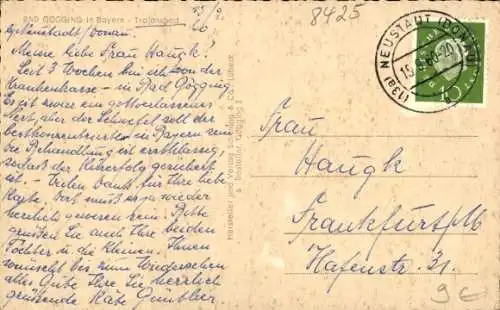 BAD GÖGGING in Bayern - Trajansbad
8425
b/Neustadt/Donau.
Meine liebe Frau Haugk!
Seit 3 Wochen bin ich von der
Krankenkasse – in Bad Gögging.
Es ist zwar ein gottverlassenes
Nest, aber der Schwefel soll der
bestkonzentrierteste in Bayern sein
die Behandlung ist erstklassig,
sodaß der Kurerfolg gesichert
ist. – Vielen Dank für Ihre liebe
Karte, dort muß es ja wieder
herrlich gewesen sein. Bitte
grüßen Sie auch Ihre beiden
Töchter u. die Kleinen. Ihnen
wünscht bis zum Wiedersehen
alles Gute Ihre Sie herzlich
grüßende Käte Günther
Hersteller und Verlag Schöning & Co., Lübeck
(13a) NEUSTADT (DONAU)
15.
60-20
10
Frau
Haugk
Frankfurt/M
Hafenstr. 31.
9€